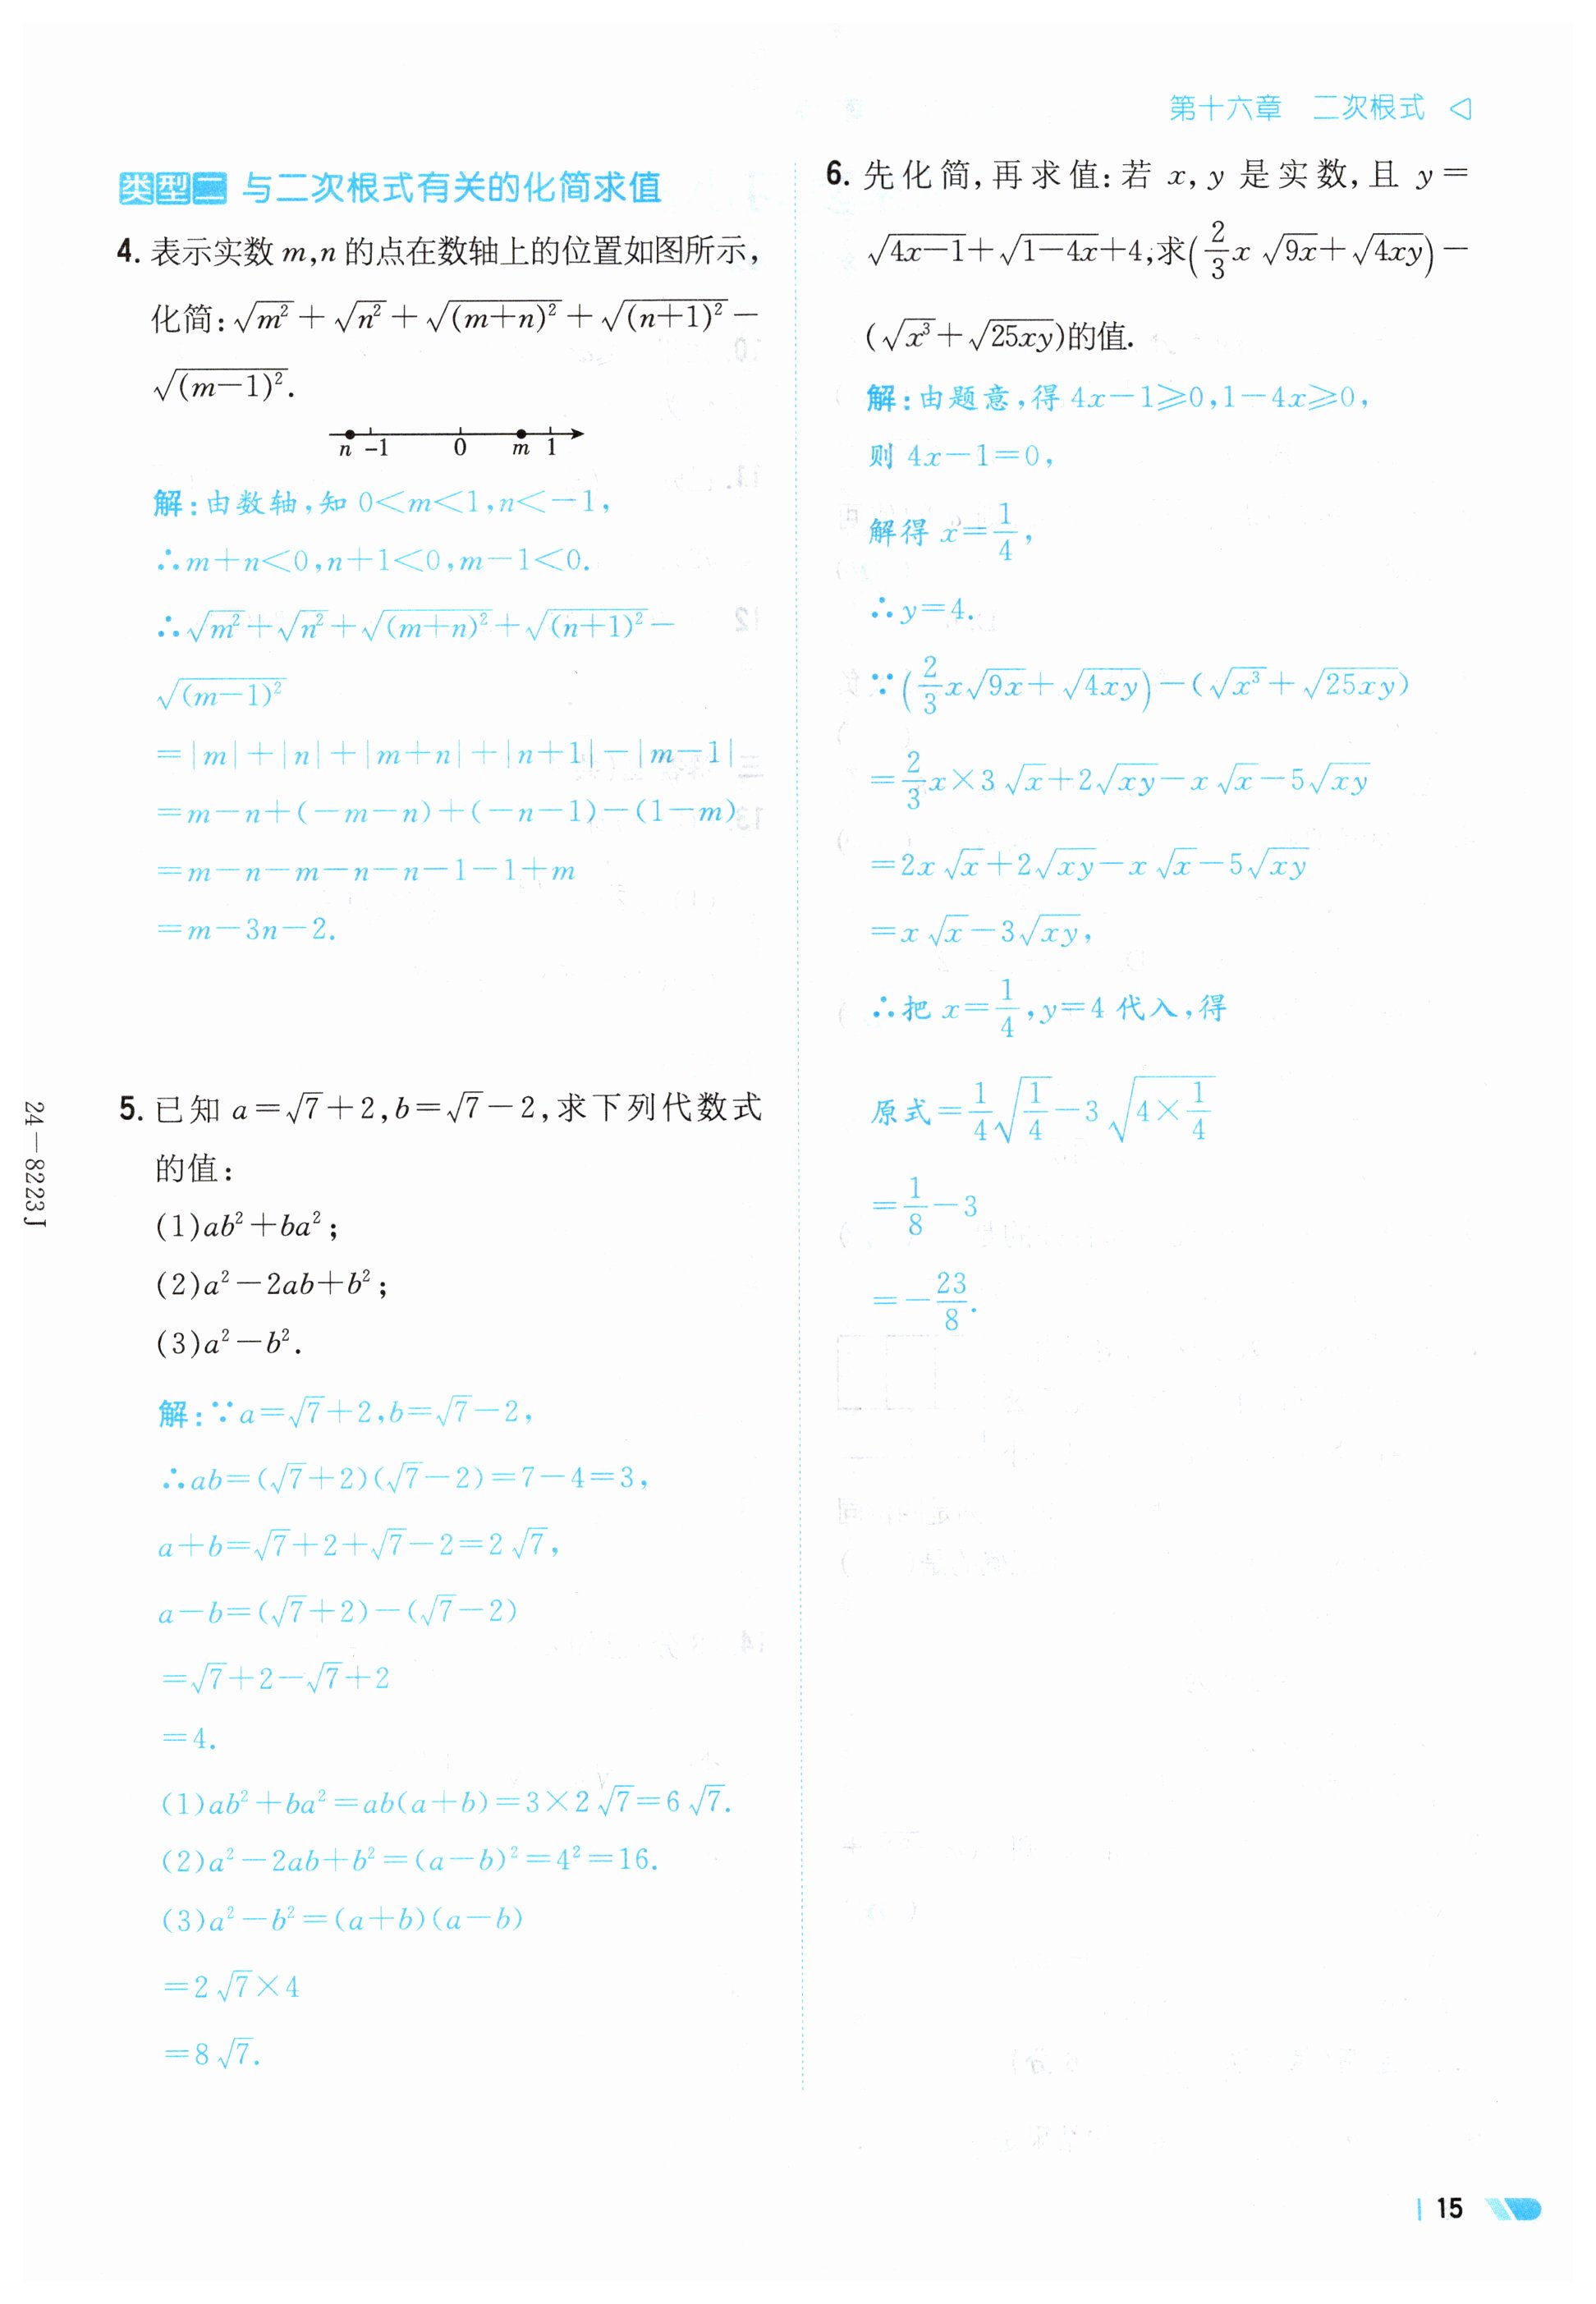 第十六章 二次根式
类型二 与二次根式有关的化简求值
4. 表示实数 m,n 的点在数轴上的位置如图所示,
化简:√(m²)+√(n²)+√((m+n)²)+√((n+1)²)-
√((m-1)²).
n -1 0 m 1
解:由数轴,知 0<m<1,n<-1,
∴m+n<0,n+1<0,m-1<0.
∴√(m²)+√(n²)+√((m+n)²)+√((n+1)²)-
√((m-1)²)
=|m|+|n|+|m+n|+|n+1|-|m-1|
=m-n+(-m-n)+(-n-1)-(1-m)
=m-n-m-n-n-1-1+m
=m-3n-2.
5. 已知 a=√7+2,b=√7-2,求下列代数式
的值:
(1)ab²+ba²;
(2)a²-2ab+b²;
(3)a²-b².
解:∵a=√7+2,b=√7-2,
∴ab=(√7+2)(√7-2)=7-4=3,
a+b=√7+2+√7-2=2√7,
a-b=(√7+2)-(√7-2)
=√7+2-√7+2
=4.
(1)ab²+ba²=ab(a+b)=3×2√7=6√7.
(2)a²-2ab+b²=(a-b)²=4²=16.
(3)a²-b²=(a+b)(a-b)
=2√7×4
=8√7.
6. 先化简,再求值:若 x,y 是实数,且 y=
√(4x-1)+√(1-4x)+4;求(2/3 x√(9x)+√(4xy))-
(√(x³)+√(25xy))的值.
解:由题意,得 4x-1≥0,1-4x≥0,
则 4x-1=0,
解得 x=1/4,
∴y=4.
∵(2/3 x√(9x)+√(4xy))-(√(x³)+√(25xy))
=2/3 x×3√x+2√(xy)-x√x-5√(xy)
=2x√x+2√(xy)-x√x-5√(xy)
=x√x-3√(xy),
∴把 x=1/4,y=4 代入,得
原式=1/4√(1/4)-3√(4×1/4)
=1/8-3
=-23/8.
24-8223J
15